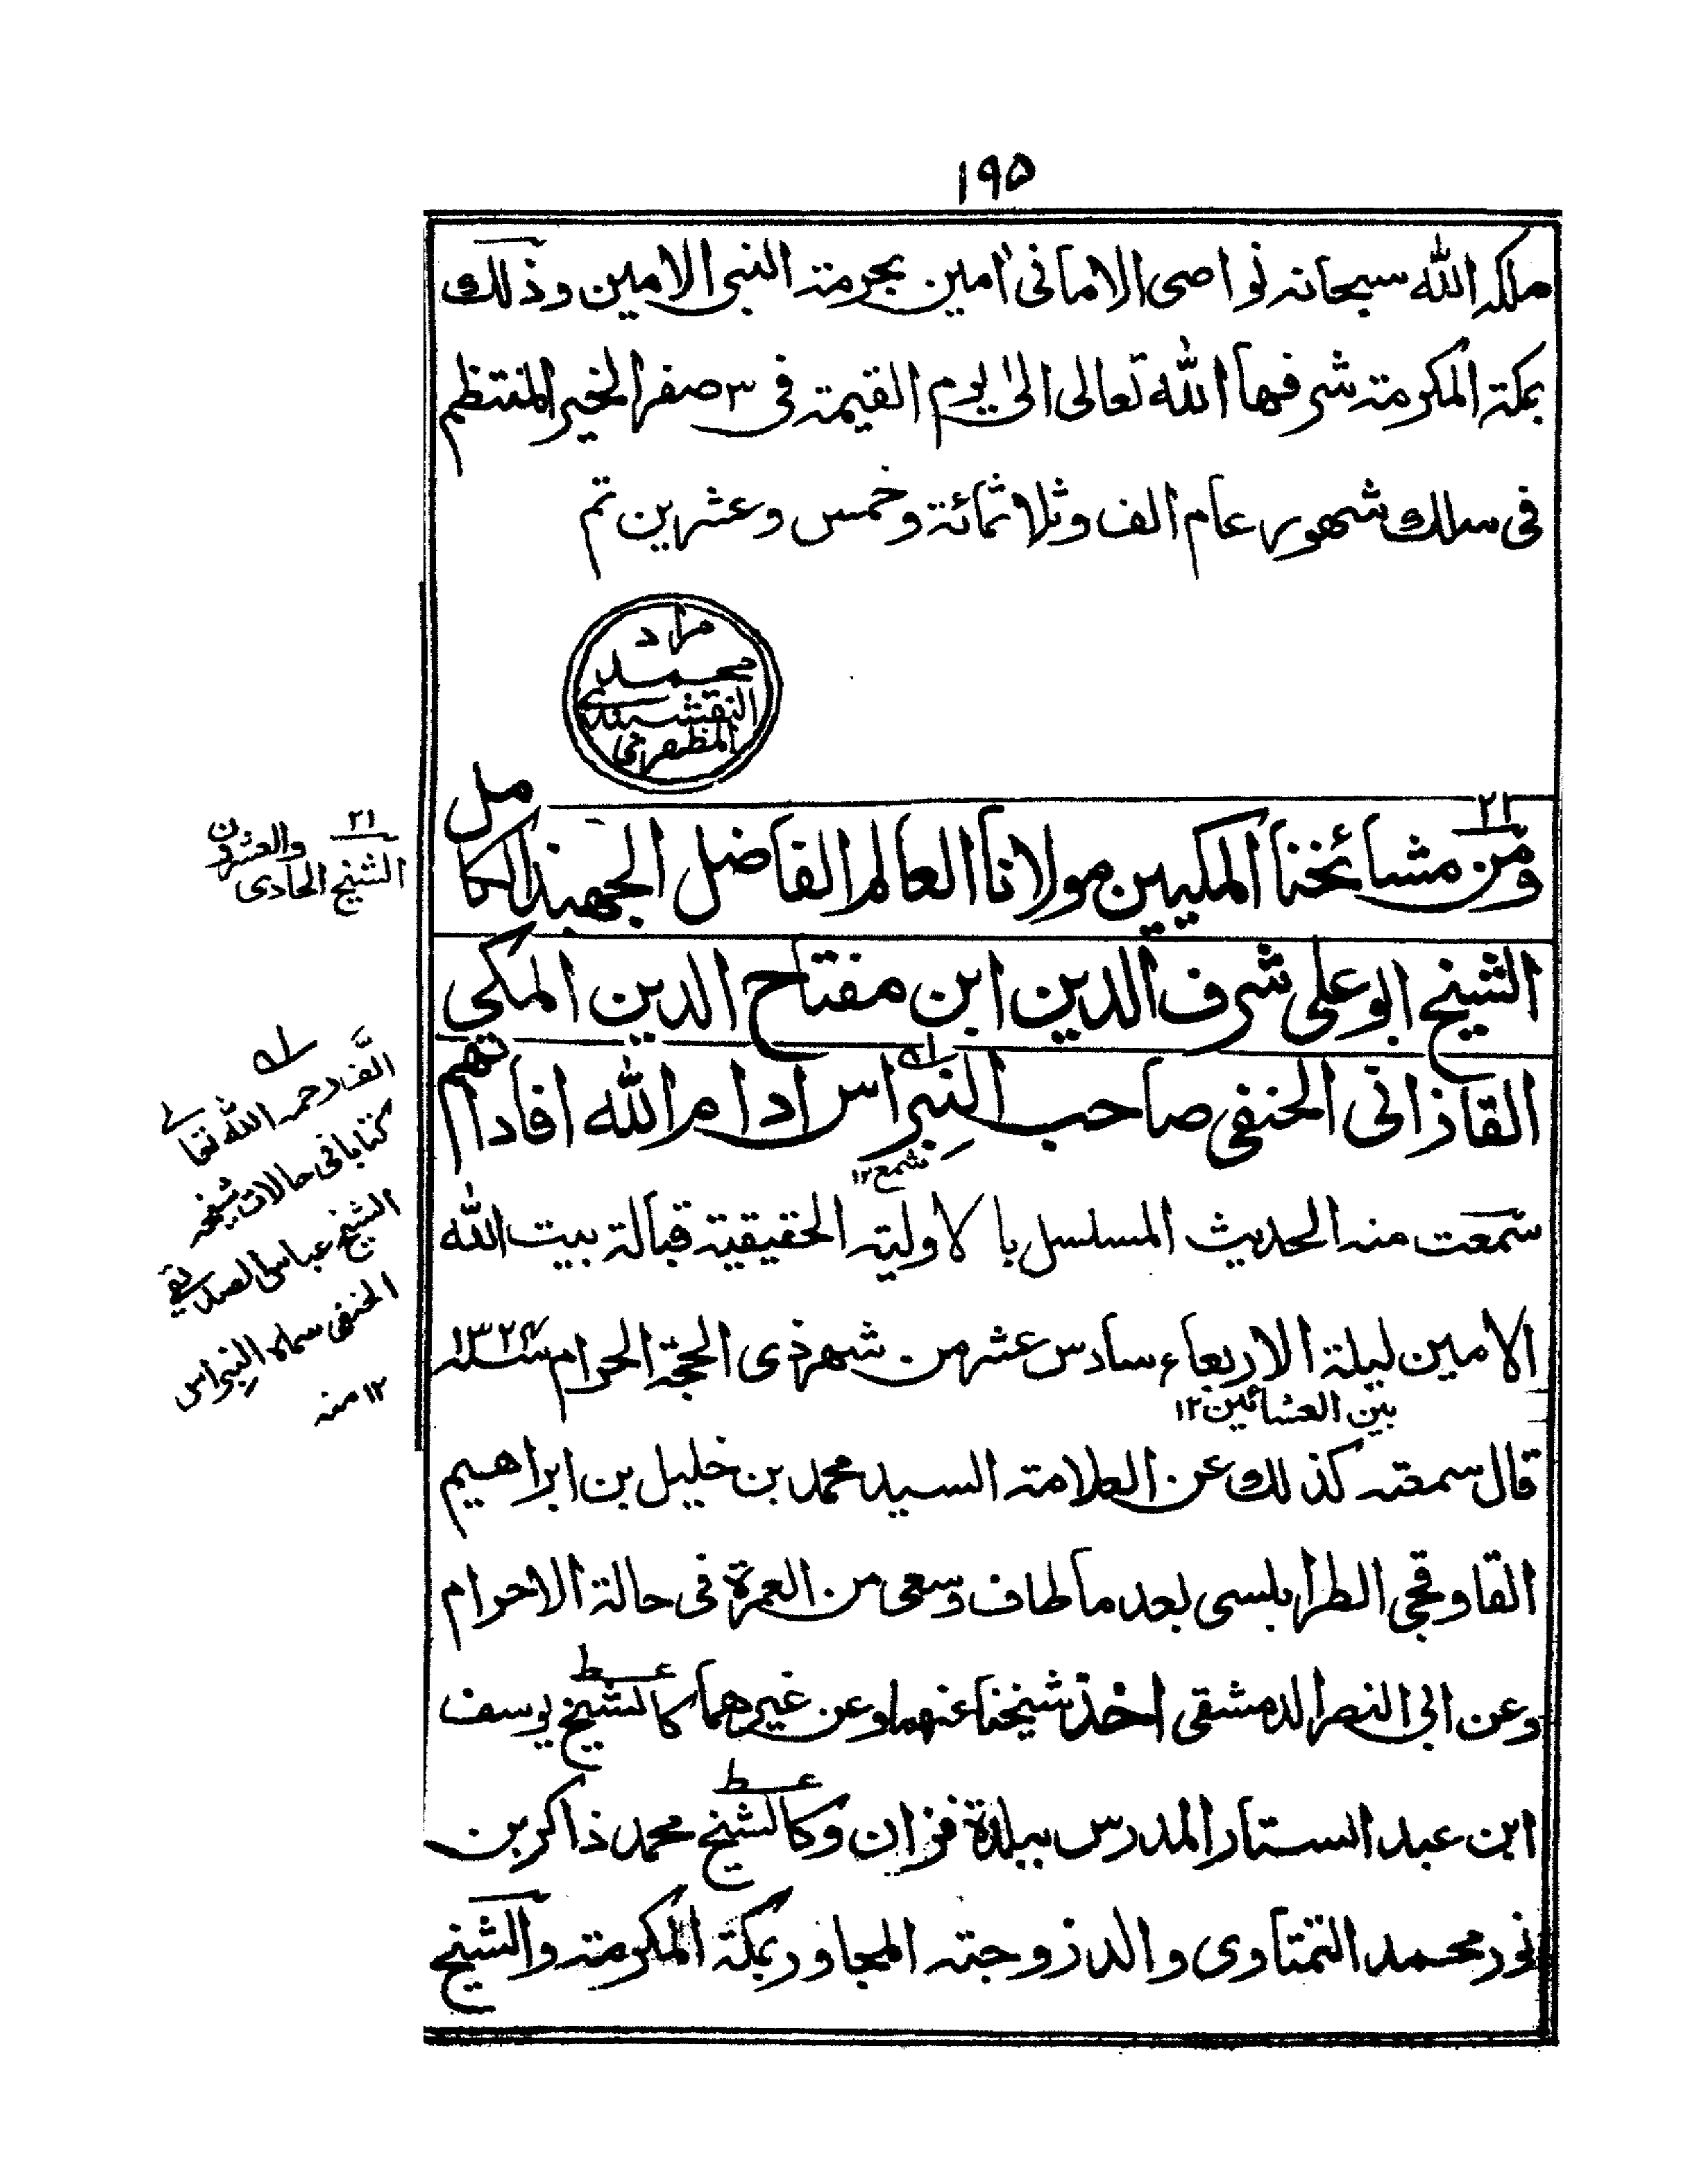 ١٩٥
ملكه الله سبحانه نواصى الامانى امين بحرمة النبى الامين وذلك
بمكة المكرمة شرفها الله تعالى الىٰ يوم القيمة فى ٣ صفر الخير المنتظم
فى سلك شهور عام الف وثلاثمائة وخمس وعشرين تم
مراد
محمد
النقشبندى
المظهرى
٢١
ومن مشائخنا المكيين مولانا العالم الفاضل الجهبذ الكامل
الشيخ ابو على شرف الدين ابن مفتاح الدين المكى
القازانى الحنفى صاحب النِبراس ادام الله افاداتهم
شمع ١٢
سمعت منه الحديث المسلسل بالاولية الحقيقية قبالة بيت الله
الامين ليلة الاربعاء سادس عشر من شهر ذى الحجة الحرام سنة ١٣٢٤
بين العشائين ١٢
قال سمعته كذلك عن العلامة السيد محمد بن خليل بن ابراهيم
القاوقجى الطرابلسى بعد ما طاف وسعى من العمرة فى حالة الاحرام
وعن ابى النصر الدمشقى اخذ شيخنا عنهما وعن غيرهما كالشيخ يوسف
ابن عبد الستار المدرس ببلدة فزان وكالشيخ محمد ذاكر بن
نور محمد التمتاوى والد زوجته المجاور بمكة المكرمة والشيخ
٢١
الشيخ الحادى والعشرون
الّف رحمه الله تعالى
كتابا فى حالات شيخه
الشيخ عباس الصديقى
الحنفى سماه النِبراس
١٢ منه